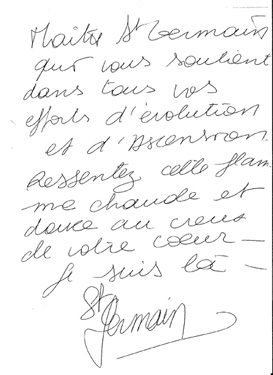 Maitre St Germain
qui vous soutient
dans tous vos
efforts d'évolution
et d'Ascension.
Ressentez cette flam
me chaude et
douce au creux
de votre coeur —
Je suis là —
St
Germain